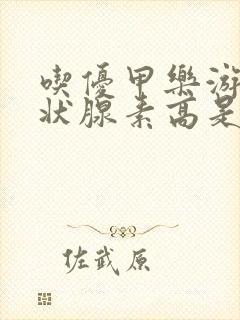 喫優甲樂游
狀腺素高是
佐武原